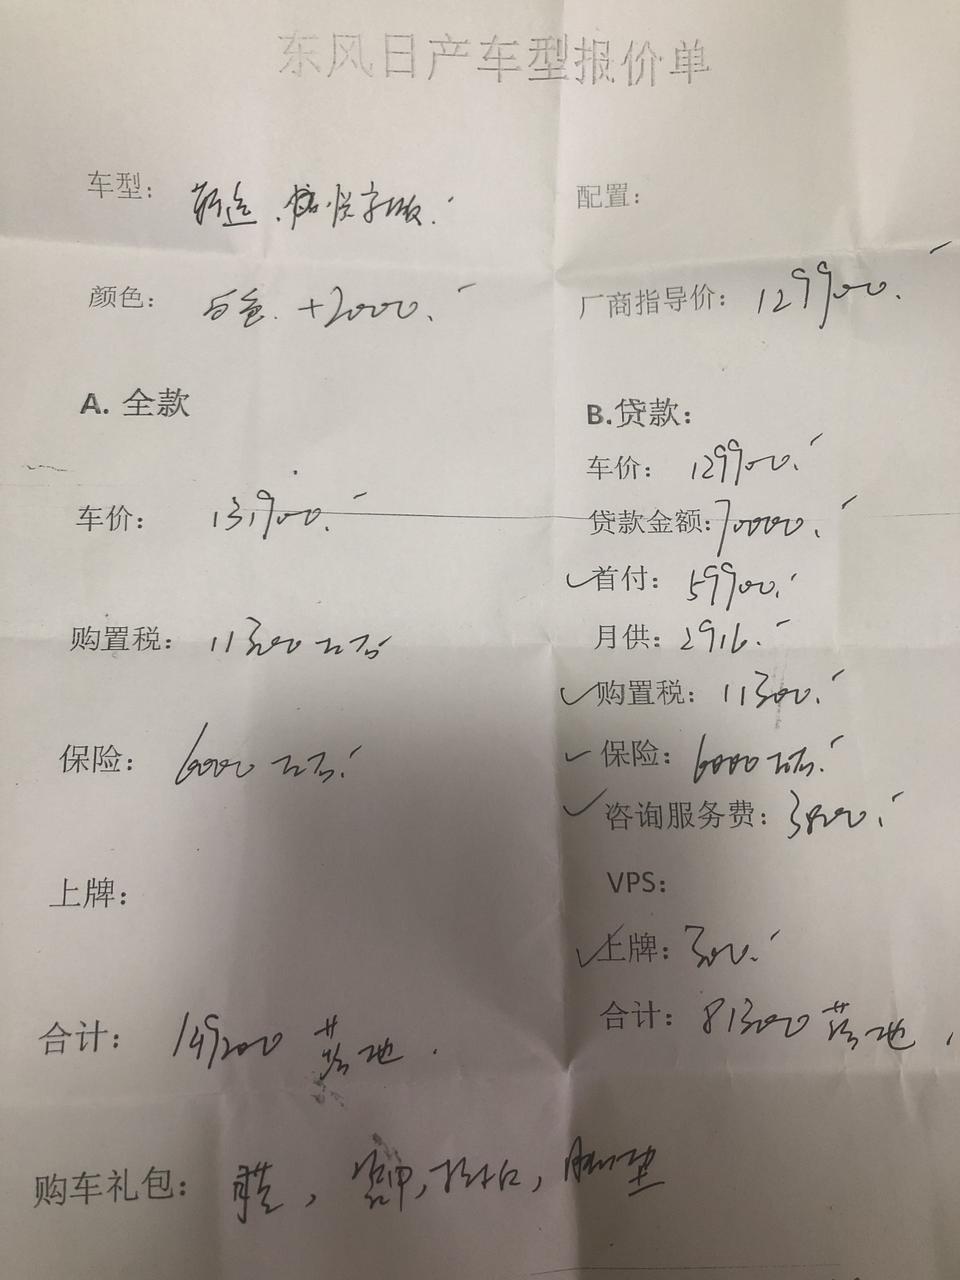 东风日产车型报价单
车型： 新逍 . 悦享版.
配置：
颜色： 白色. +2000.
厂商指导价： 129900.
A. 全款
B.贷款：
车价： 129900.
车价： 131900.
贷款金额：70000.
首付： 59900.
月供： 2916.
购置税： 11300左右
购置税： 11300.
保险： 6000左右.
保险： 6000左右.
咨询服务费： 3800.
上牌：
VPS：
上牌： 300.
合计： 149200 落地.
合计： 81300 落地.
购车礼包： 膜， 脚垫